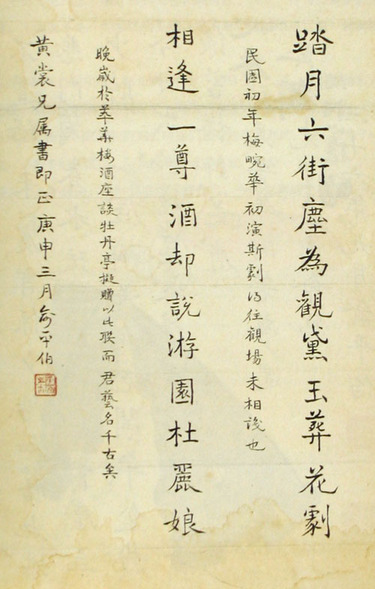 踏月六街塵為觀黛玉葬花劇
民國初年梅畹華初演斯劇得往觀場未相識也
相逢一尊酒却說游園杜麗娘
晚歲於萃華樓酒座談牡丹亭擬贈以此聯而君藝名千古矣
黃裳兄属書即正庚申三月俞平伯